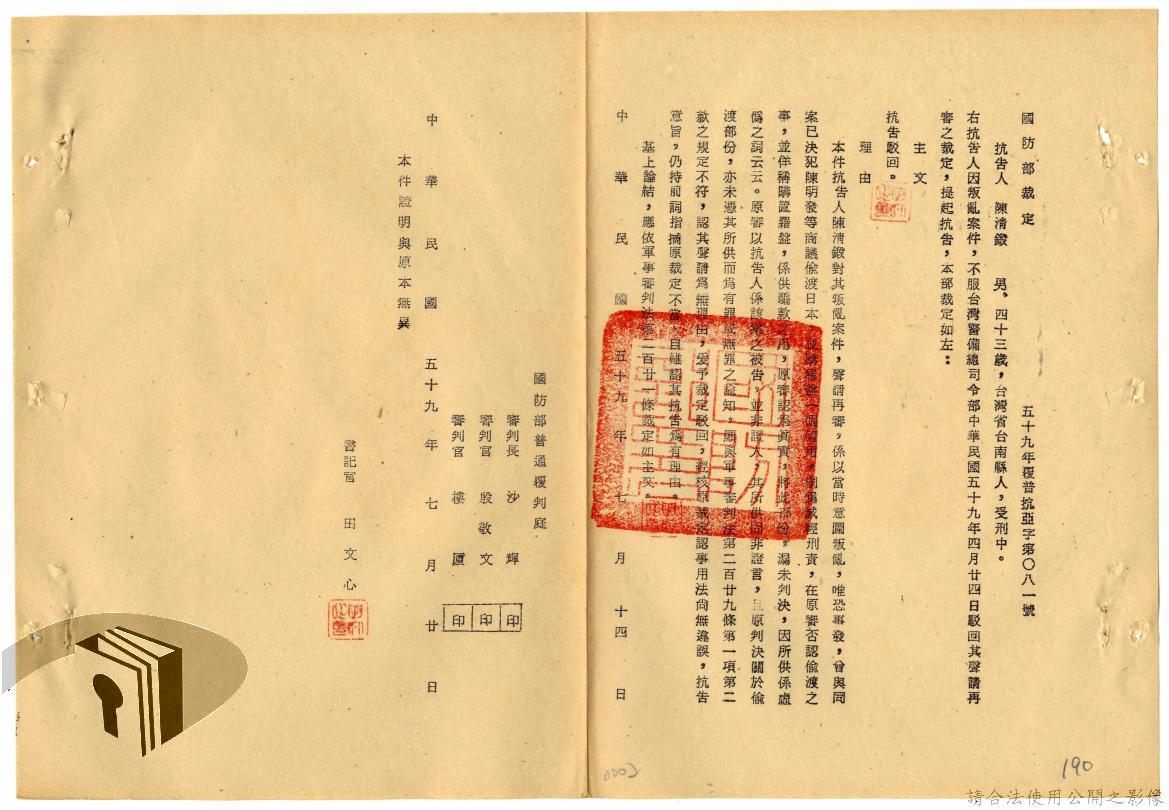 國防部裁定
五十九年覆普抗亞字第〇八一號
抗告人 陳清鍛 男、四十三歲，台灣省台南縣人，受刑中。
右抗告人因叛亂案件，不服台灣警備總司令部中華民國五十九年四月廿四日駁回其聲請再
審之裁定，提起抗告，本部裁定如左：
主文
抗告駁回。
理由
本件抗告人陳清鍛對其叛亂案件，聲請再審，係以當時意圖叛亂，唯恐事發，曾與同
案已決犯陳明發等商議偷渡日本，減輕刑責，在原審否認偷渡之
事，並佯稱購置羅盤，係供騙款之用，原審認為真實，將此部份，漏未判決，因所供係虛
偽之詞云云。原審以抗告人係該案之被告，並非證人，其所供尚非證言，且原判決關於偷
渡部份，亦未憑其所供而為有罪或無罪之諭知，顯與軍事審判法第二百廿九條第一項第二
款之規定不符，認其聲請為無理由，爰予裁定駁回，經核原裁定認事用法尚無違誤，抗告
意旨，仍持前詞指摘原裁定不當，自難認其抗告為有理由。
基上論結，應依軍事審判法第二百廿一條裁定如主文。
中華民國五十九年七月十四日
國防部普通覆判庭
審判長 沙輝 印
審判官 殷敬文 印
審判官 樓廈 印
中華民國五十九年七月廿日
本件證明與原本無異
書記官 田文心
190
請合法使用公開之影像